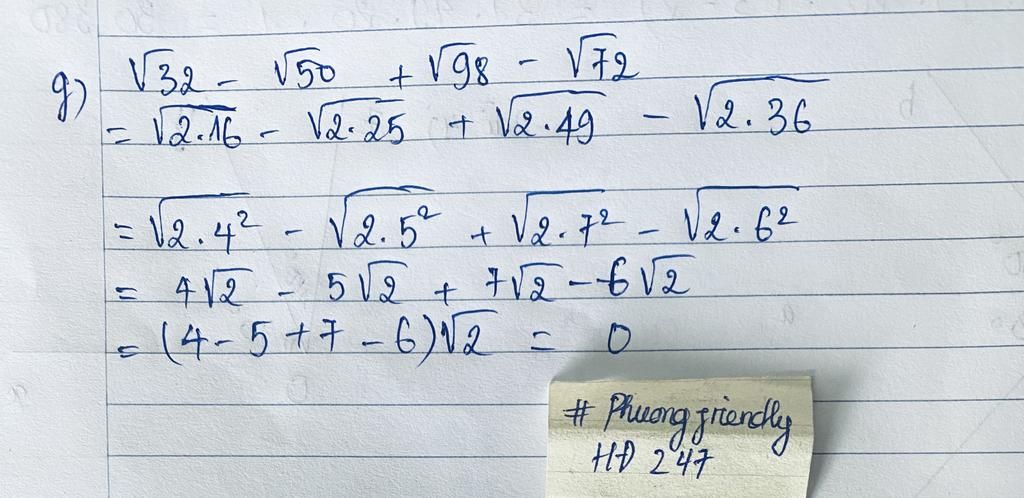 g) √32 - √50 + √98 - √72
= √2.16 - √2.25 + √2.49 - √2.36
= √2.4² - √2.5² + √2.7² - √2.6²
= 4√2 - 5√2 + 7√2 - 6√2
= (4 - 5 + 7 - 6)√2 = 0
# Phuong friendly
HĐ 247